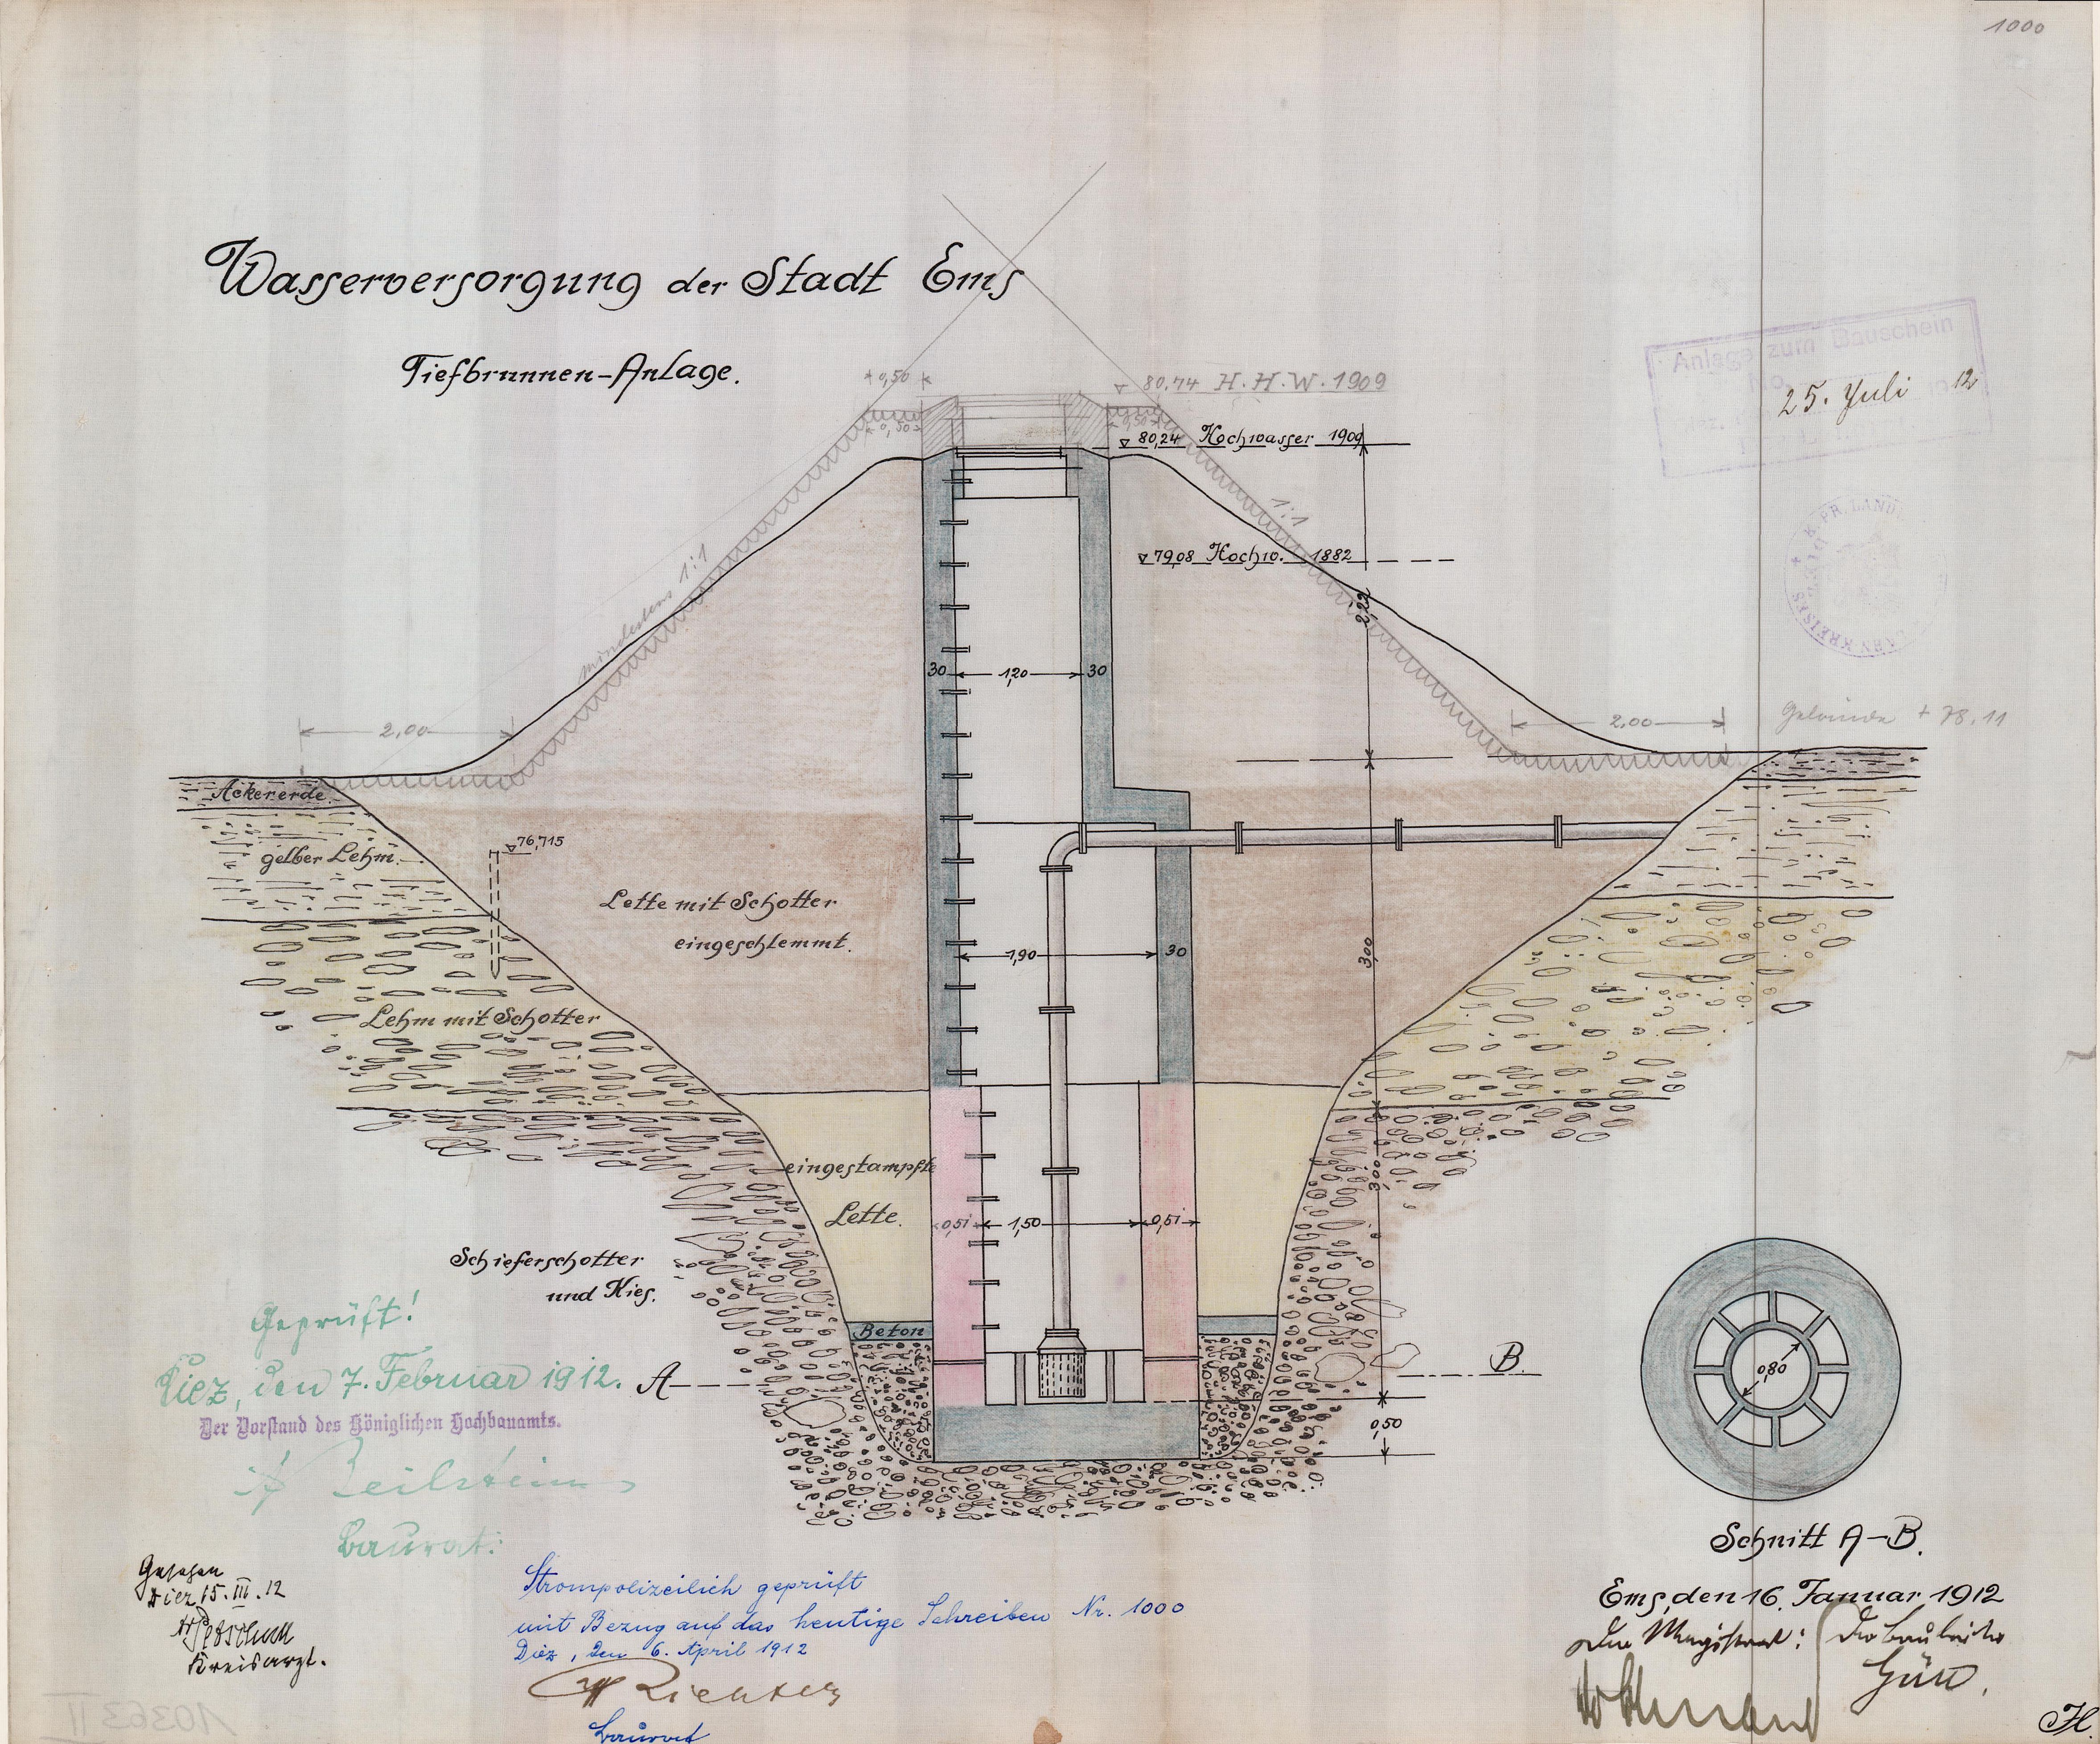 1000
Wasserversorgung der Stadt Ems
Tiefbrunnen-Anlage.
0,50
80,74 H.H.W. 1909
0,50
0,50
80,24 Hochwasser 1909
Anlage zum Bauschein
No.
25. Juli 12
K. PR. LAND
1:1
1:1
mindestens
79,08 Hochw. 1882
2,22
30
1,20
30
2,00
2,00
Gelände + 78,11
Ackererde.
gelber Lehm.
76,715
Lette mit Schotter
eingeschlemmt.
1,90
30
3,00
Lehm mit Schotter
eingestampfte
Lette.
0,51
1,50
0,51
3,00
Schieferschotter
und Kies.
Beton
A
B.
0,50
0,80
Geprüft!
Diez, den 7. Februar 1912.
Der Vorstand des Königlichen Hochbauamts.
Beilstein
Baurat.
Schnitt A-B.
Ems, den 16. Januar 1912
Der Magistrat: Die Bauleitung
Gesehen
Diez 15. III. 12
Kreisarzt.
Strompolizeilich geprüft
mit Bezug auf das heutige Schreiben Nr. 1000
Diez, den 6. April 1912
Richter
Baurat
10363 II
H.